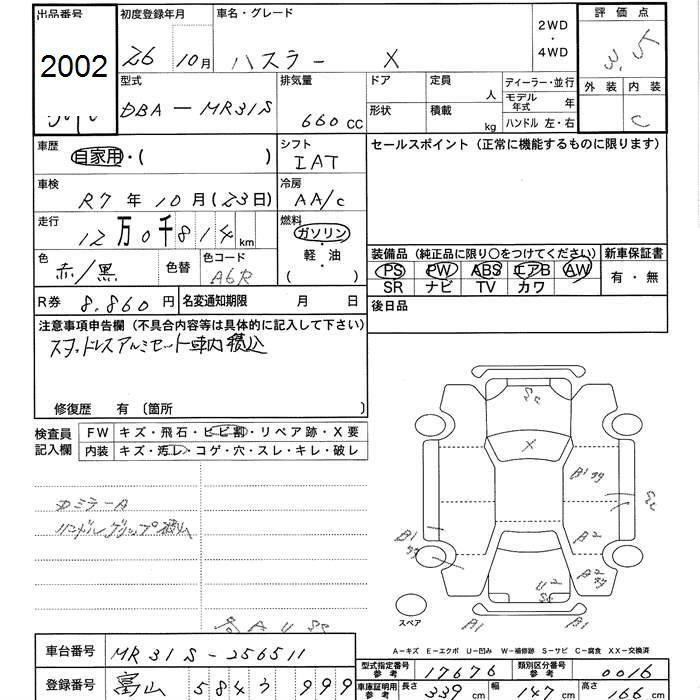 出品番号 初度登録年月 車名・グレード 評価点
2002 26年 10月 ハスラー X 2WD・4WD 3.5
型式 排気量 ドア 定員 ディーラー・並行 外装 内装
DBA-MR31S 660cc 形状 人 積載 kg モデル年式 年 C
ハンドル 左・右
車歴 自家用・( ) シフト IAT セールスポイント (正常に機能するものに限ります)
車検 R7年10月(23日) 冷房 AA/c
走行 12万0千814km 燃料 ガソリン・軽油 ( )
色 赤/黒 色替 色コード A6R
装備品 (純正品に限り○をつけてください) 新車保証書
PS PW ABS エアB AW 有・無
SR ナビ TV カワ
R券 8.860円 名変通知期限 月 日 後日品
注意事項申告欄 (不具合内容等は具体的に記入して下さい)
スタッドレスアルミセット車内積込
修復歴 有 (箇所 )
検査員記入欄 FW キズ・飛石・ヒビ割・リペア跡・X要
内装 キズ・汚レ・コゲ・穴・スレ・キレ・破レ
ハンドルグリップ
X
スペア
A-キズ E-エクボ U-凹み W-補修跡 S-サビ C-腐食 XX-交換済
車台番号 MR31S-256511
型式指定番号 参考 17676 類別区分番号 参考 0016
登録番号 富山 584 う 999
車庫証明用 参考 長さ 339cm 幅 147cm 高さ 166cm